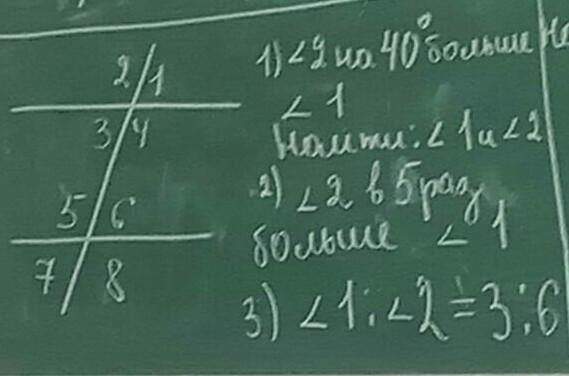 2 1
3 4
5 6
7 8
1) ∠2 на 40° больше
∠1
Найти: ∠1 и ∠2
2) ∠2 в 5 раз
больше ∠1
3) ∠1 : ∠2 = 3 : 6